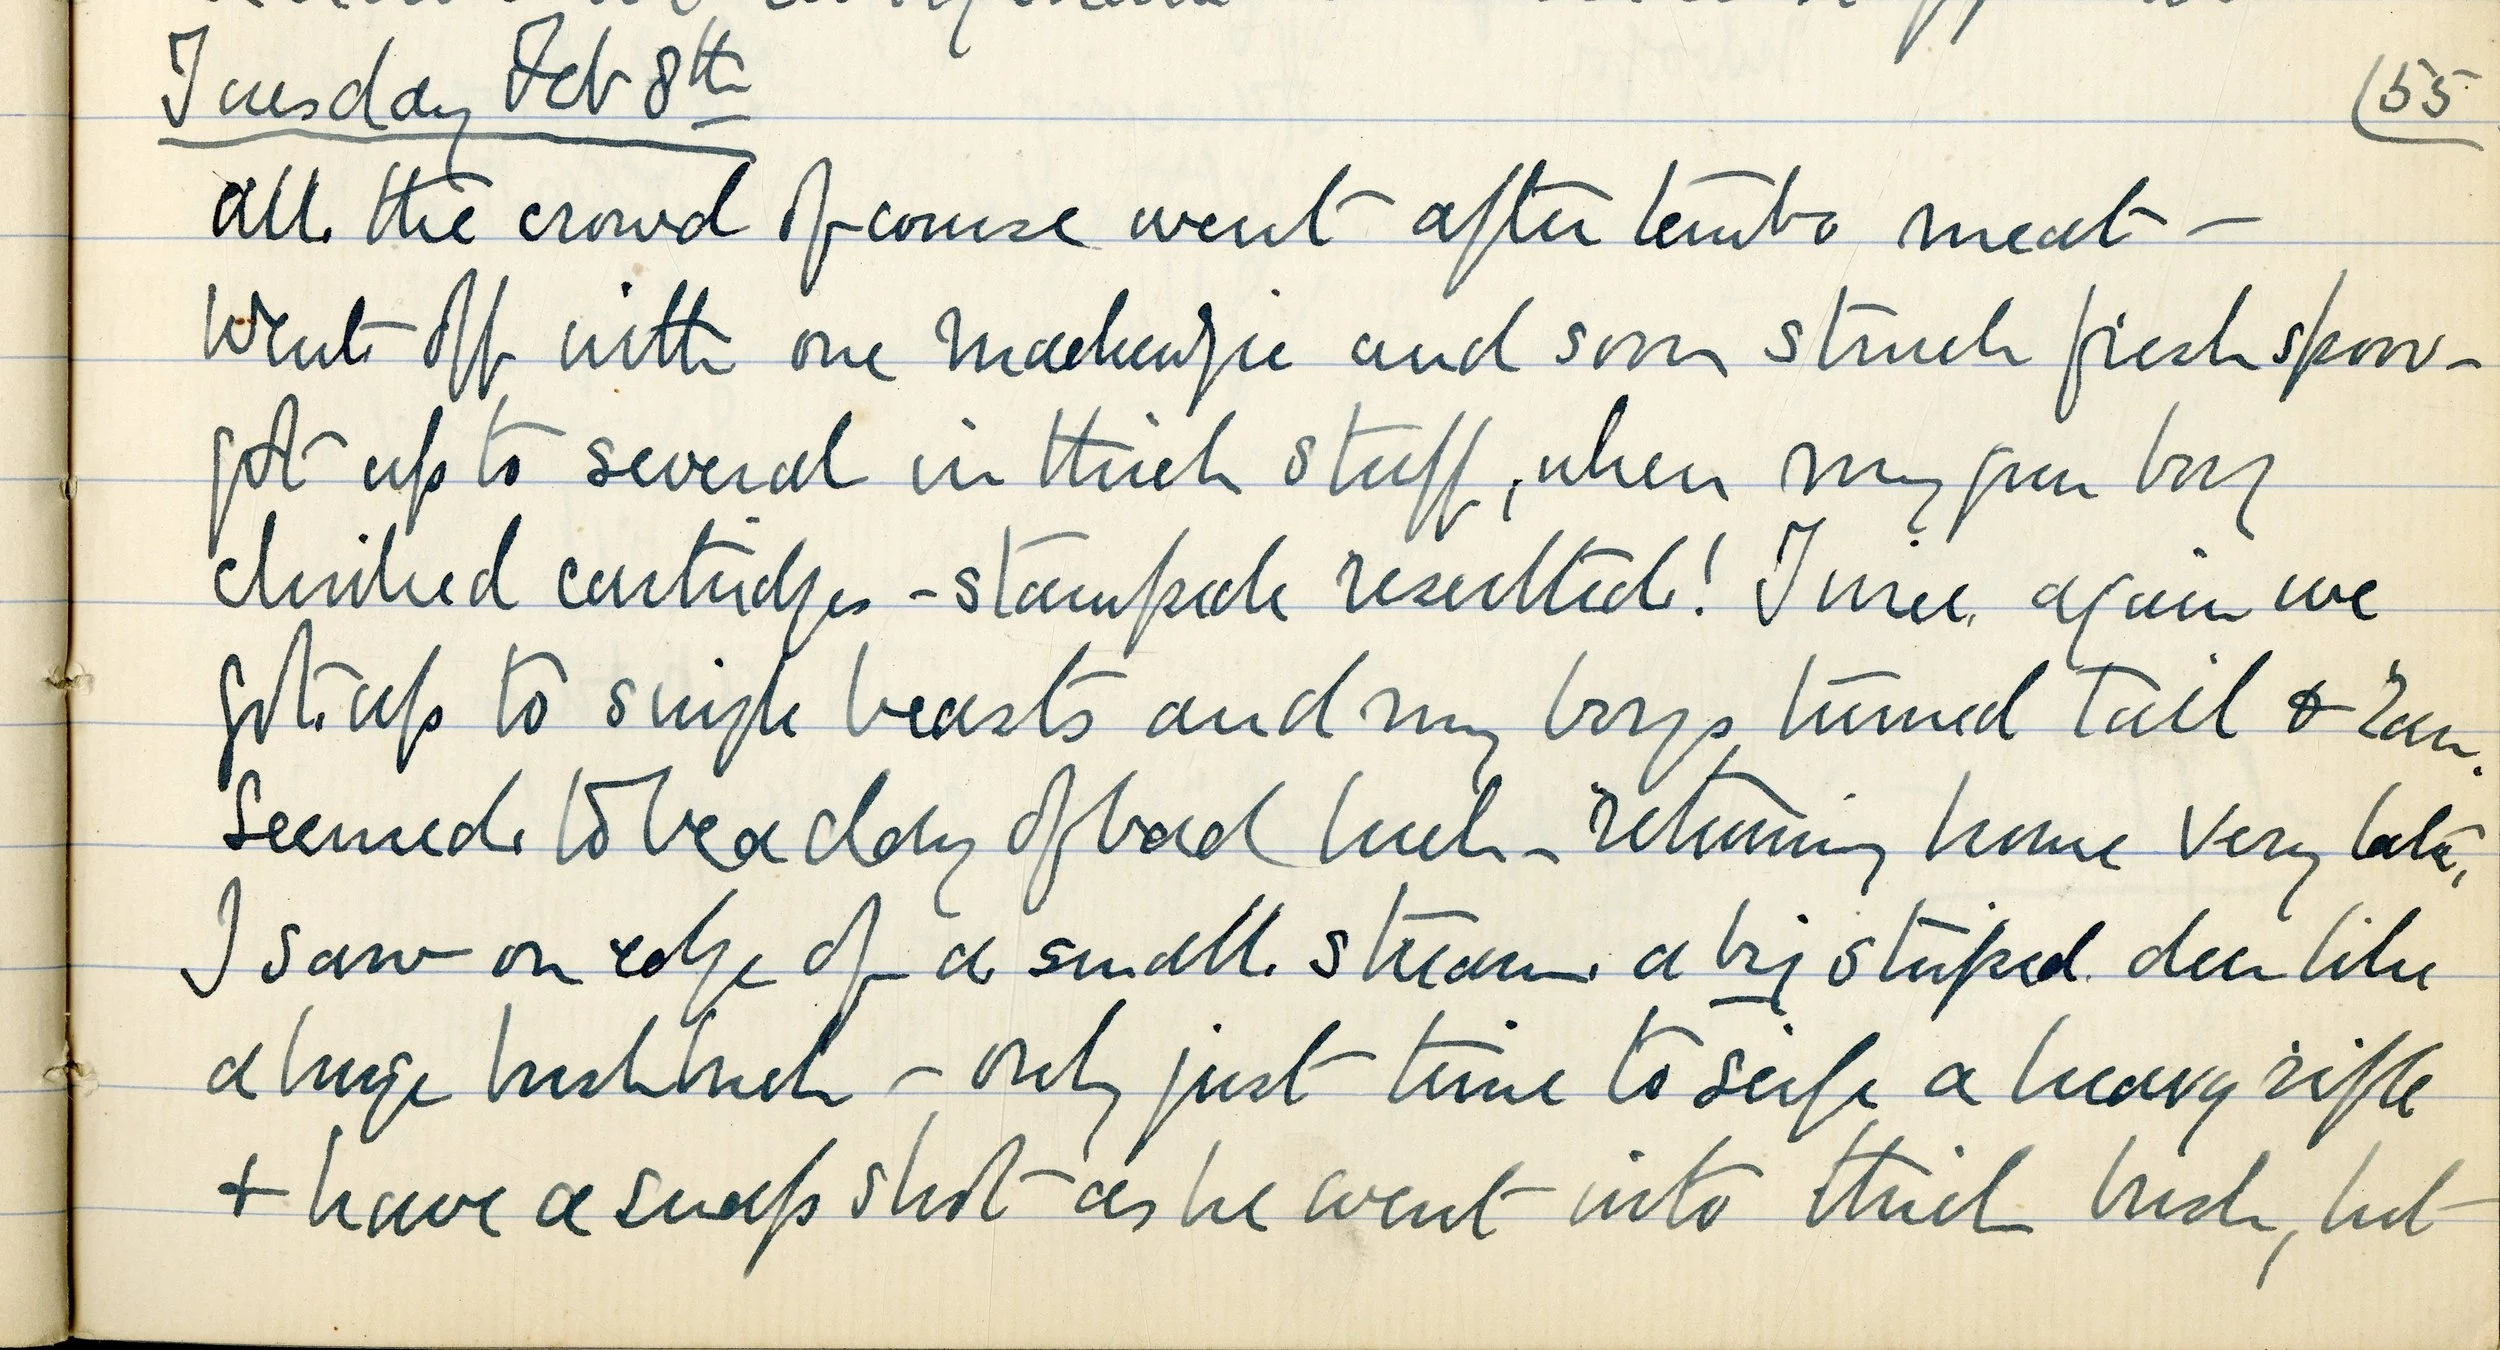 Tuesday Feb 8th
(55
All the crowd of course went after tembo meat –
Went off with one Mackenzie and soon struck fresh spoor –
got up to several in thick stuff, when my gun boy
clinked cartridges – stampede resulted! Twice again we
got up to single beasts and my boys turned tail + ran.
Seemed to be a day of bad luck – returning home very late,
I saw on edge of a small stream a big striped deer like
a huge bushbuck – only just time to seize a heavy rifle
+ have a snap shot as he went into thick bush, but